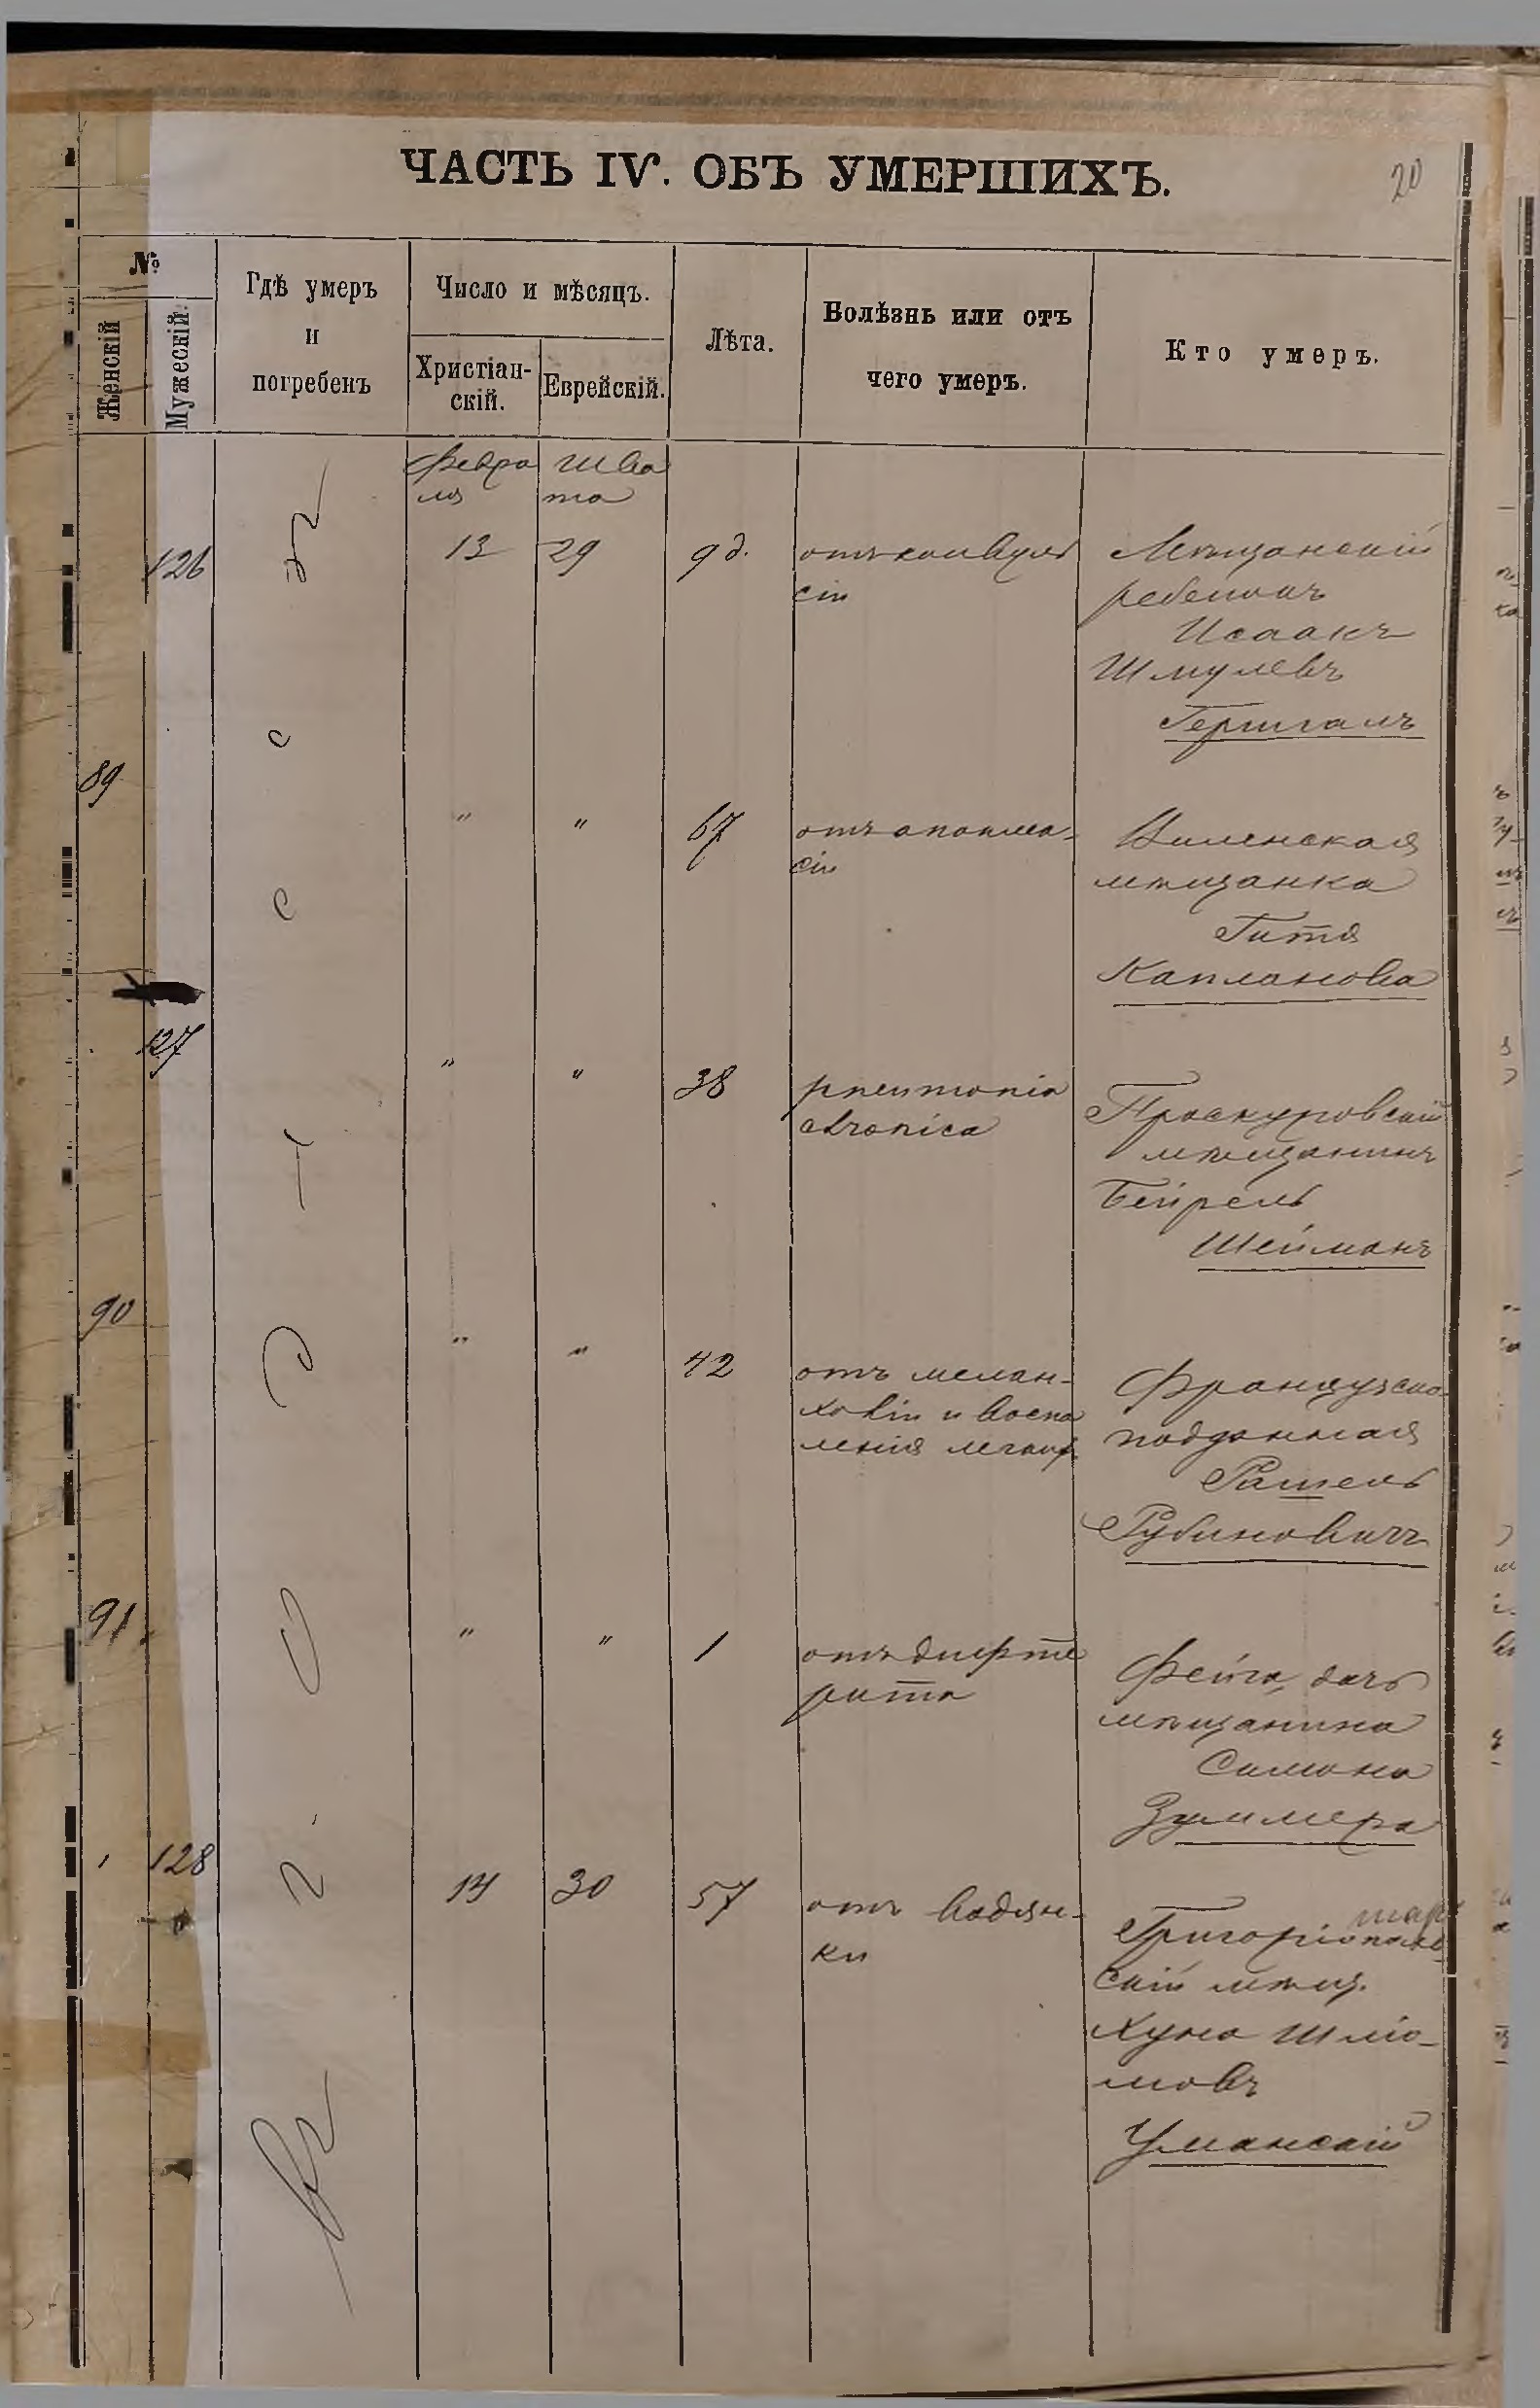 ЧАСТЬ IV. ОБЪ УМЕРШИХЪ.
20
№
Женскій
Мужескій.
Гдѣ умеръ
и
погребенъ
Число и мѣсяцъ.
Христіан-
скій.
Еврейскій.
Лѣта.
Болѣзнь или отъ
чего умеръ.
Кто умеръ.
Февра
ля
Шва
та
126
13
29
9 д.
отъ конвуль
сіи
Мѣщанскій
ребенокъ
Исаакъ
Шмулевъ
89
"
"
67
отъ апоплек-
сіи
Виленская
мѣщанка
Гитя
Капланова
127
"
"
38
pneumonia
chronica
Проскуровскій
мѣщанинъ
Бейрель
Шейманъ
90
"
"
42
отъ мелан-
холіи и воспа
ленія легкихъ
Французско-
подданная
Рашель
Рубиновичъ
91
"
"
1
отъ дифте
рита
Фейга, дочь
мѣщанина
Симона
Зуммера
128
14
30
57
отъ водян-
ки
Григоріополь
скій мѣщ.
Хуна Шлио-
мовъ
Уманскій